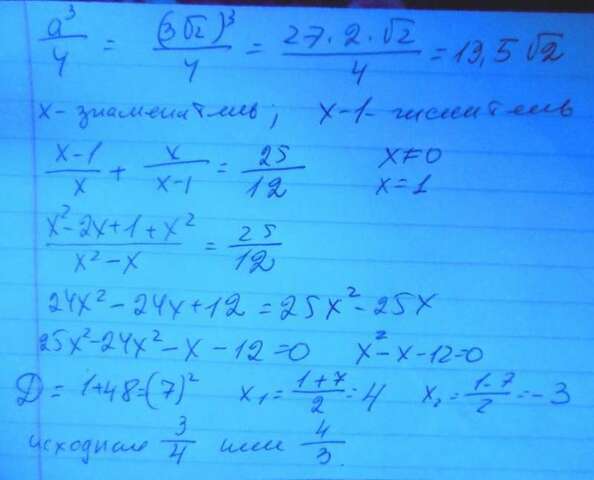 a³/4 = (3√2)³/4 = 27·2·√2/4 = 13,5√2
x - знаменатель; x-1- числитель
(x-1)/x + x/(x-1) = 25/12 x≠0
x=1
(x²-2x+1+x²)/(x²-x) = 25/12
24x²-24x+12=25x²-25x
25x²-24x²-x-12=0 x²-x-12=0
D=1+48=(7)² x₁=(1+7)/2=4 x₂=(1-7)/2=-3
исходная 3/4 или 4/3.